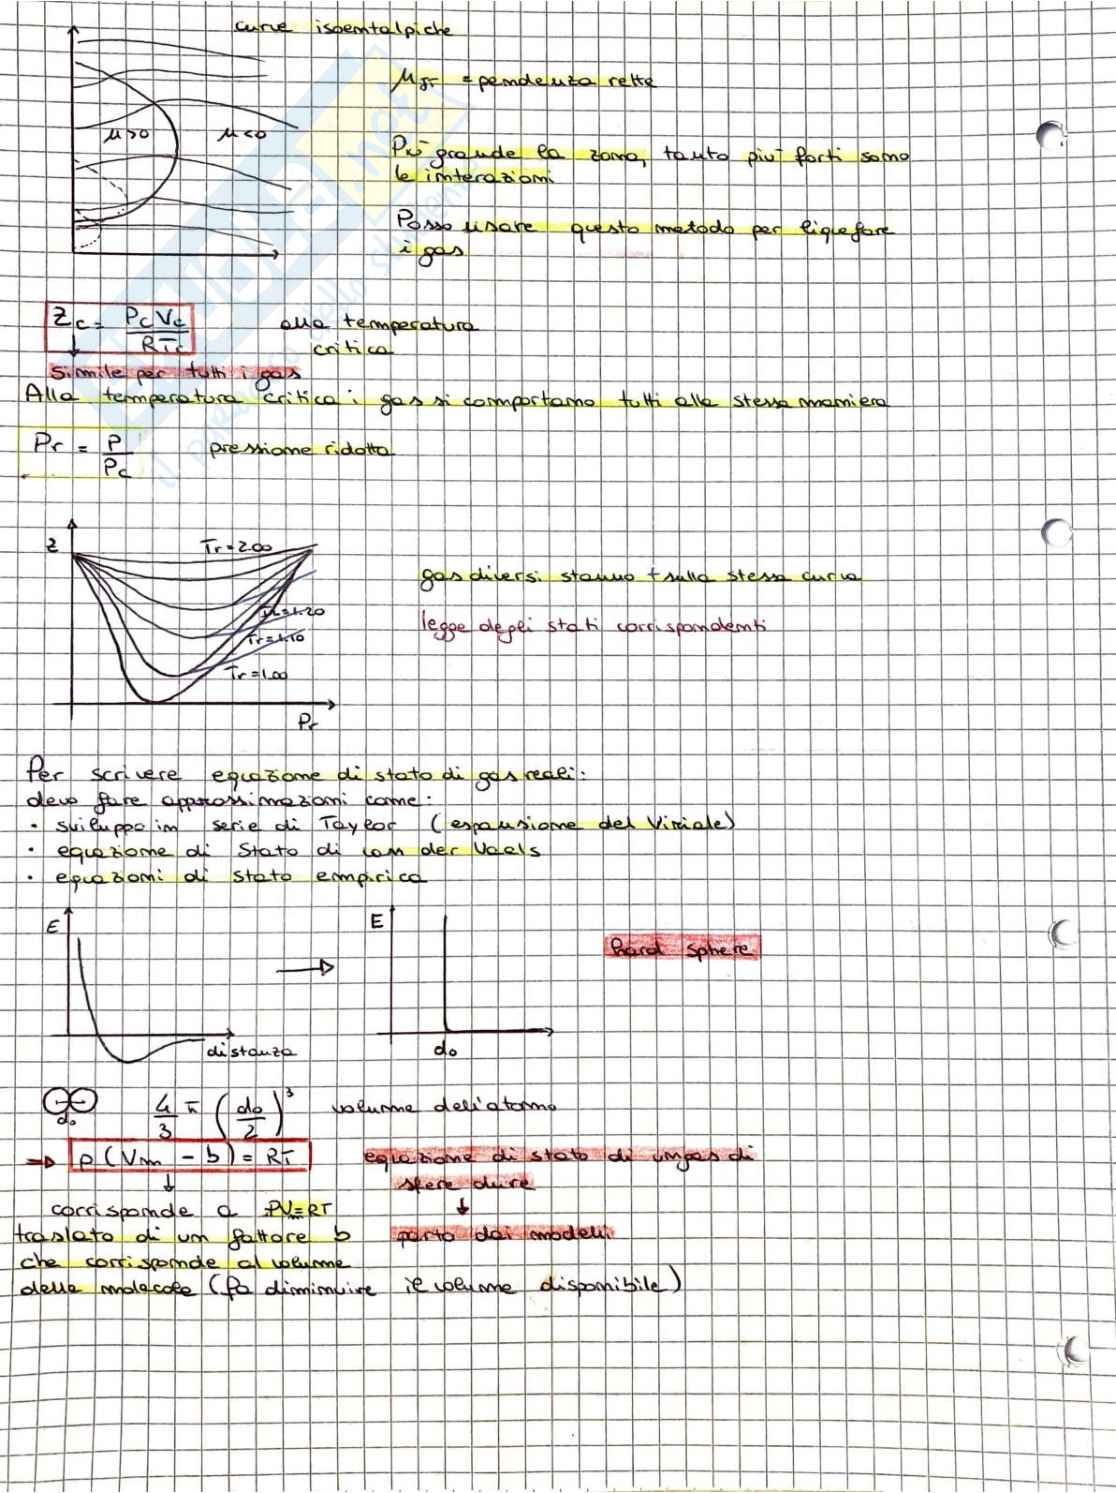 curve isoentalpiche
μJT = pendenza rette
μ>0
μ<0
Più grande la zona, tanto più forti sono
le interazioni
Posso usare questo metodo per liquefare
i gas
Zc = PcVc / RTc
alla temperatura
critica
simile per tutti i gas
Alla temperatura critica i gas si comportano tutti alla stessa maniera
Pr = P / Pc
pressione ridotta
Z
Tr=2.00
gas diversi stanno + sulla stessa curva
Tr=1.20
legge degli stati corrispondenti
Tr=1.10
Tr=1.00
Pr
Per scrivere equazione di stato di gas reali:
devo fare approssimazioni come:
· sviluppo in serie di Taylor (espansione del Viriale)
· equazione di Stato di Van der Vaals
· equazioni di stato empirica
E
E
hard sphere
distanza
do
do
4/3 π (do/2)³ volume dell'atomo
p(Vm - b) = RT
equazione di stato di un gas di
sfere dure
corrisponde a PV=RT
traslato di un fattore b
parto dai modelli
che corrisponde al volume
delle molecole (fa diminuire il volume disponibile)